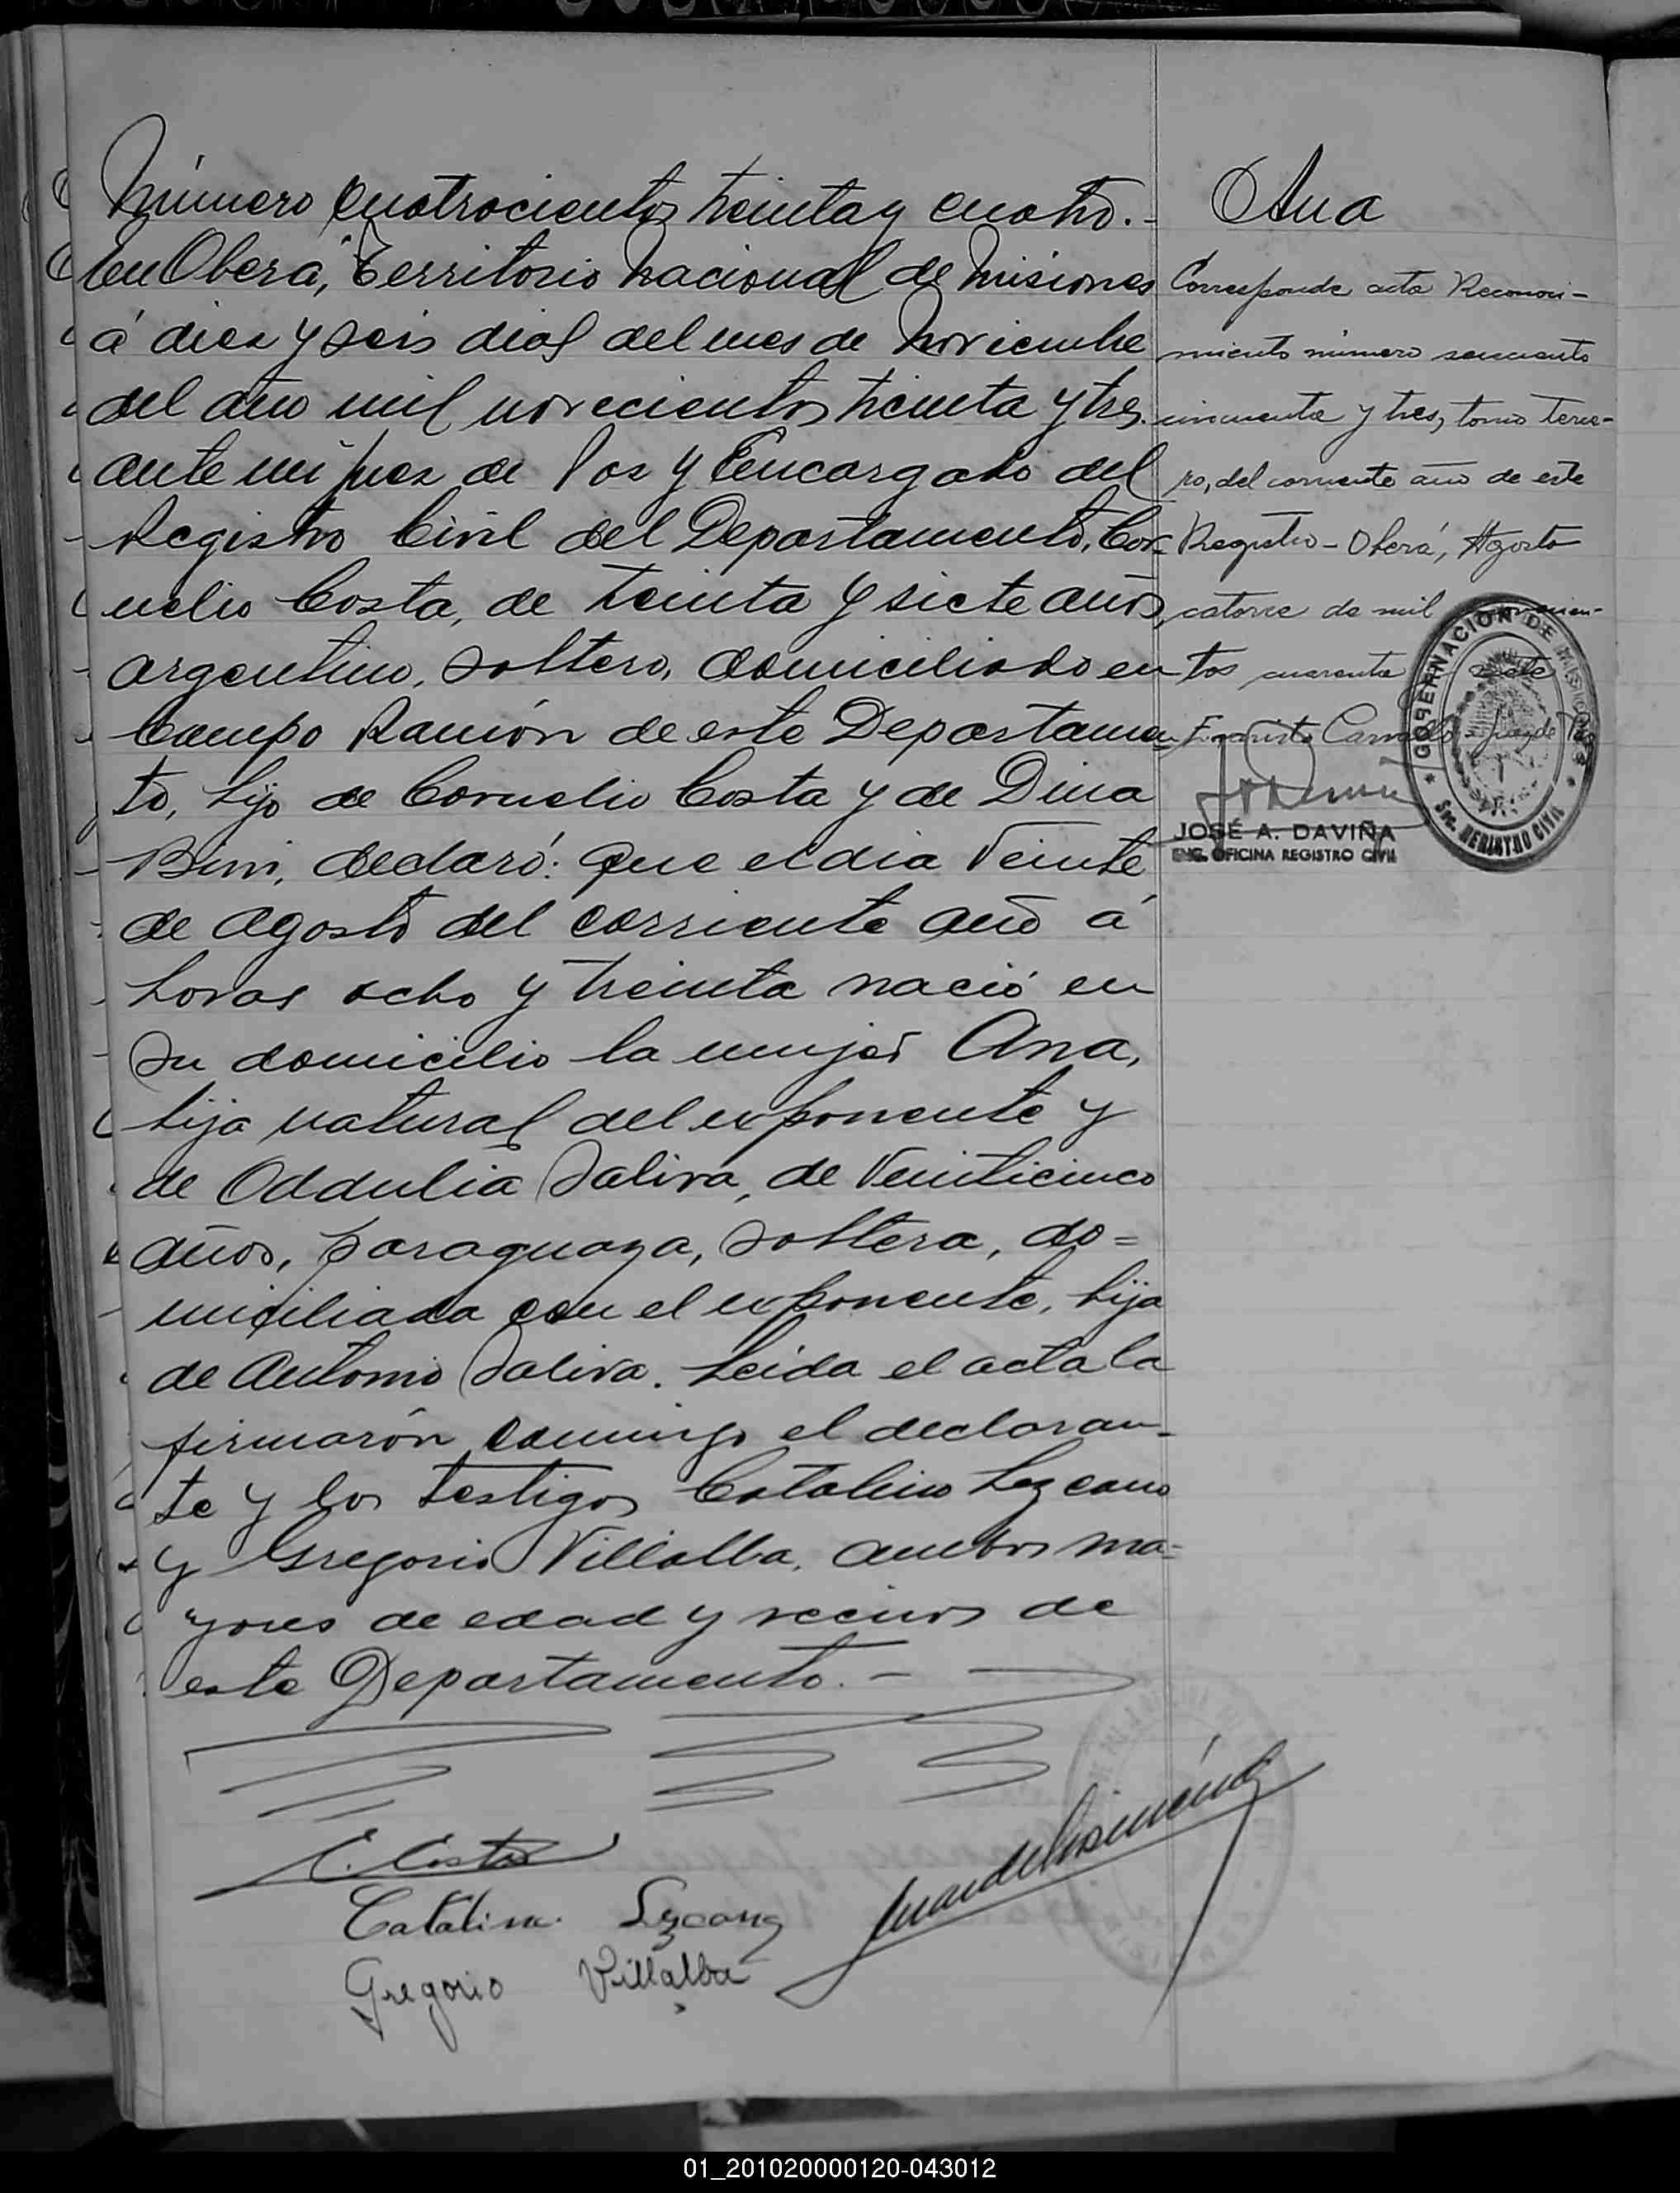 Número cuatrocientos treinta y cuatro.-
En Oberá, Territorio Nacional de Misiones
á diez y seis dias del mes de Noviembre
del año mil novecientos treinta y tres.
ante mi Juez de Paz y Encargado del
Registro Civil del Departamento, Cor-
nelio Costa, de treinta y siete años,
argentino, soltero, domiciliado en
Campo Ramón de este Departamen-
to, hijo de Cornelio Costa y de Dina
Bini, declaró: Que el dia Veinte
de Agosto del corriente año á
horas ocho y treinta nació en
su domicilio la mujer Ana,
hija natural del exponente y
de Oddulia Saliva, de Veinticinco
años, paraguaya, soltera, do=
miciliada con el exponente, hija
de Antonio Saliva. Leida el acta la
firmarón conmigo el declaran-
te y los testigos Catalino Lezcano
y Gregorio Villalba, ambos ma-
yores de edad y vecinos de
este Departamento.-
C. Costa
Catalino Lezcano
Gregorio Villalba
Ana
Corresponde acta Reconoci-
miento número
cincuenta y tres, tomo terce-
ro, del corriente año de este
Registro - Oberá, Agosto
catorce de mil novecien-
tos cuarenta y siete
Evaristo Carvallo - Juez de Paz
JOSÉ A. DAVIÑA
ENC. OFICINA REGISTRO CIVIL
GOBERNACION DE MISIONES
Sec. REGISTRO CIVIL
01_201020000120-043012